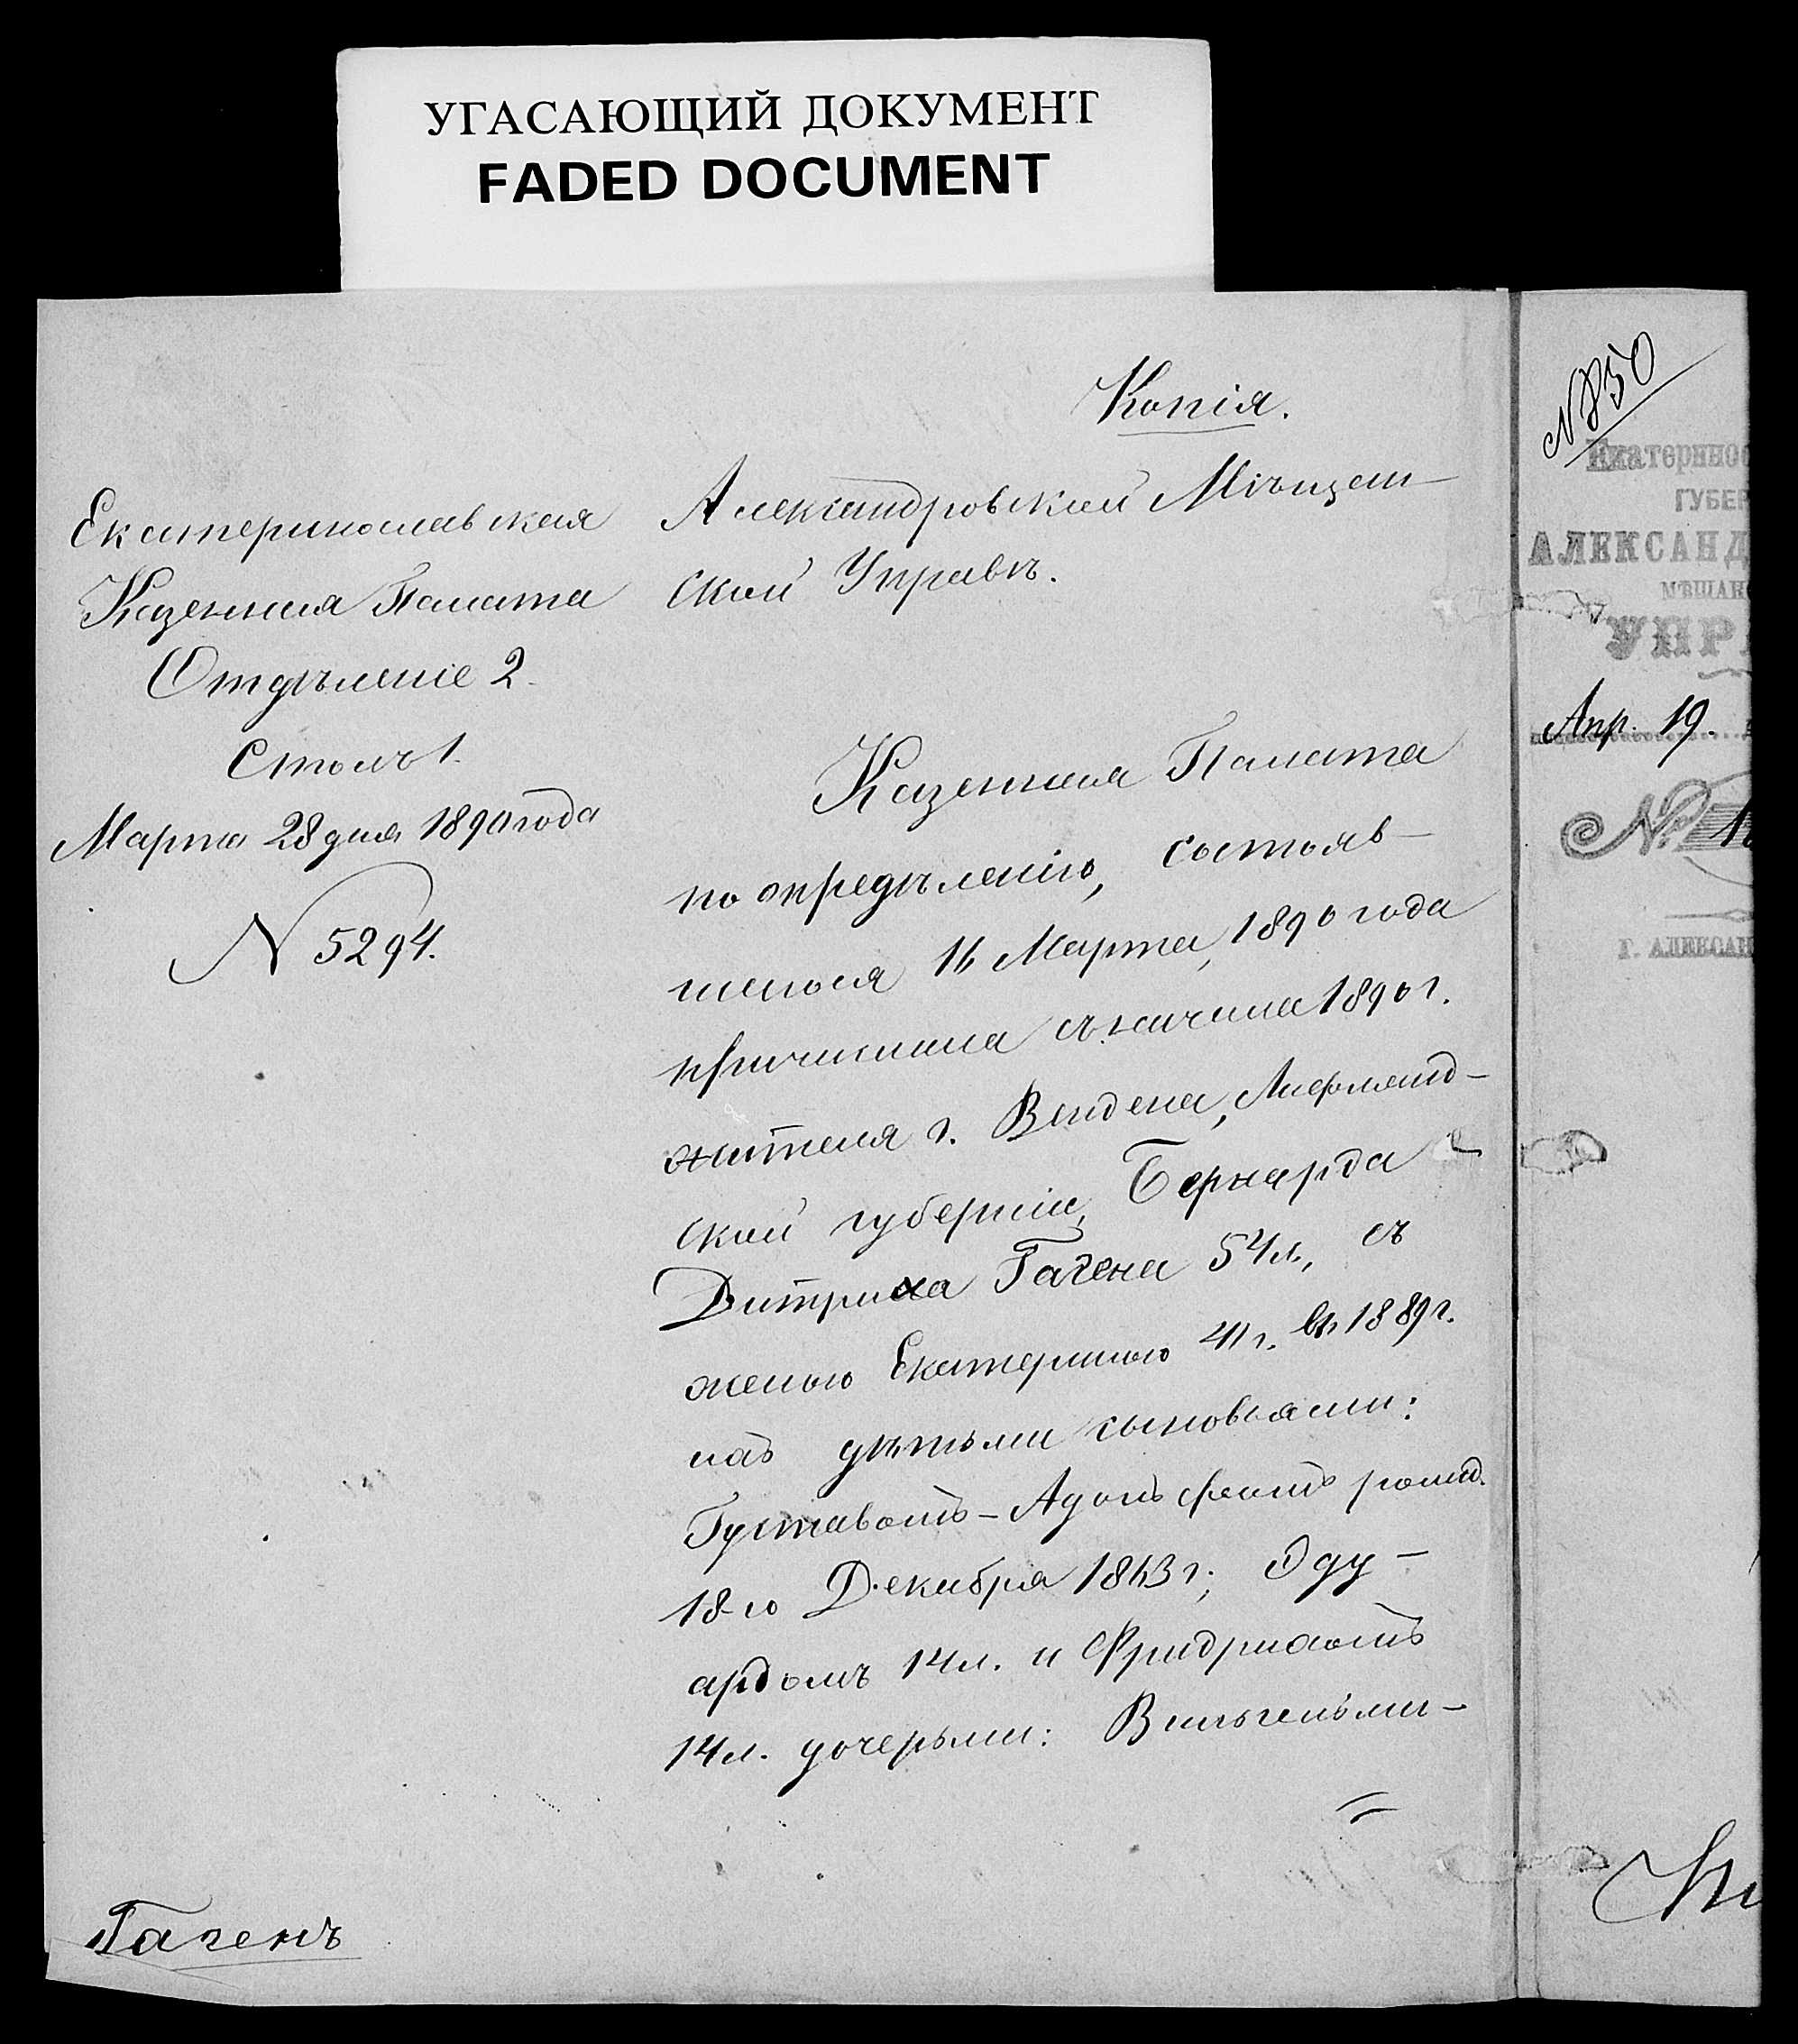 УГАСАЮЩИЙ ДОКУМЕНТ
FADED DOCUMENT
Копія.
Екатеринославская
Казенная Палата
Отдѣленіе 2.
Столъ 1.
Марта 28 дня 1890 года
N 5294.
Александровской Мѣщан-
ской Управѣ.
Казенная Палата
по опредѣленію, состояв-
шемуся 16 Марта, 1890 года
причислила съ начала 1890 г.
жителя г. Вендена, Лифлянд-
ской губерніи, Бернарда
Дитриха Гагена 54 л., съ
женою Екатериною 41 г. въ 1889 г.
дѣтьми сыновьями:
Густавомъ-Адольфомъ рожд.
18-го Декабря 1863 г.; Эду-
ардомъ 14 л. и Фридрихомъ
14 л. дочерьми: Вильгельми-
Гагенъ
N 850
Екатеринос
ГУБЕР
АЛЕКСАНД
МѢЩАН
УПР
Апр. 19.
№ 1
Г. АЛЕКСАН